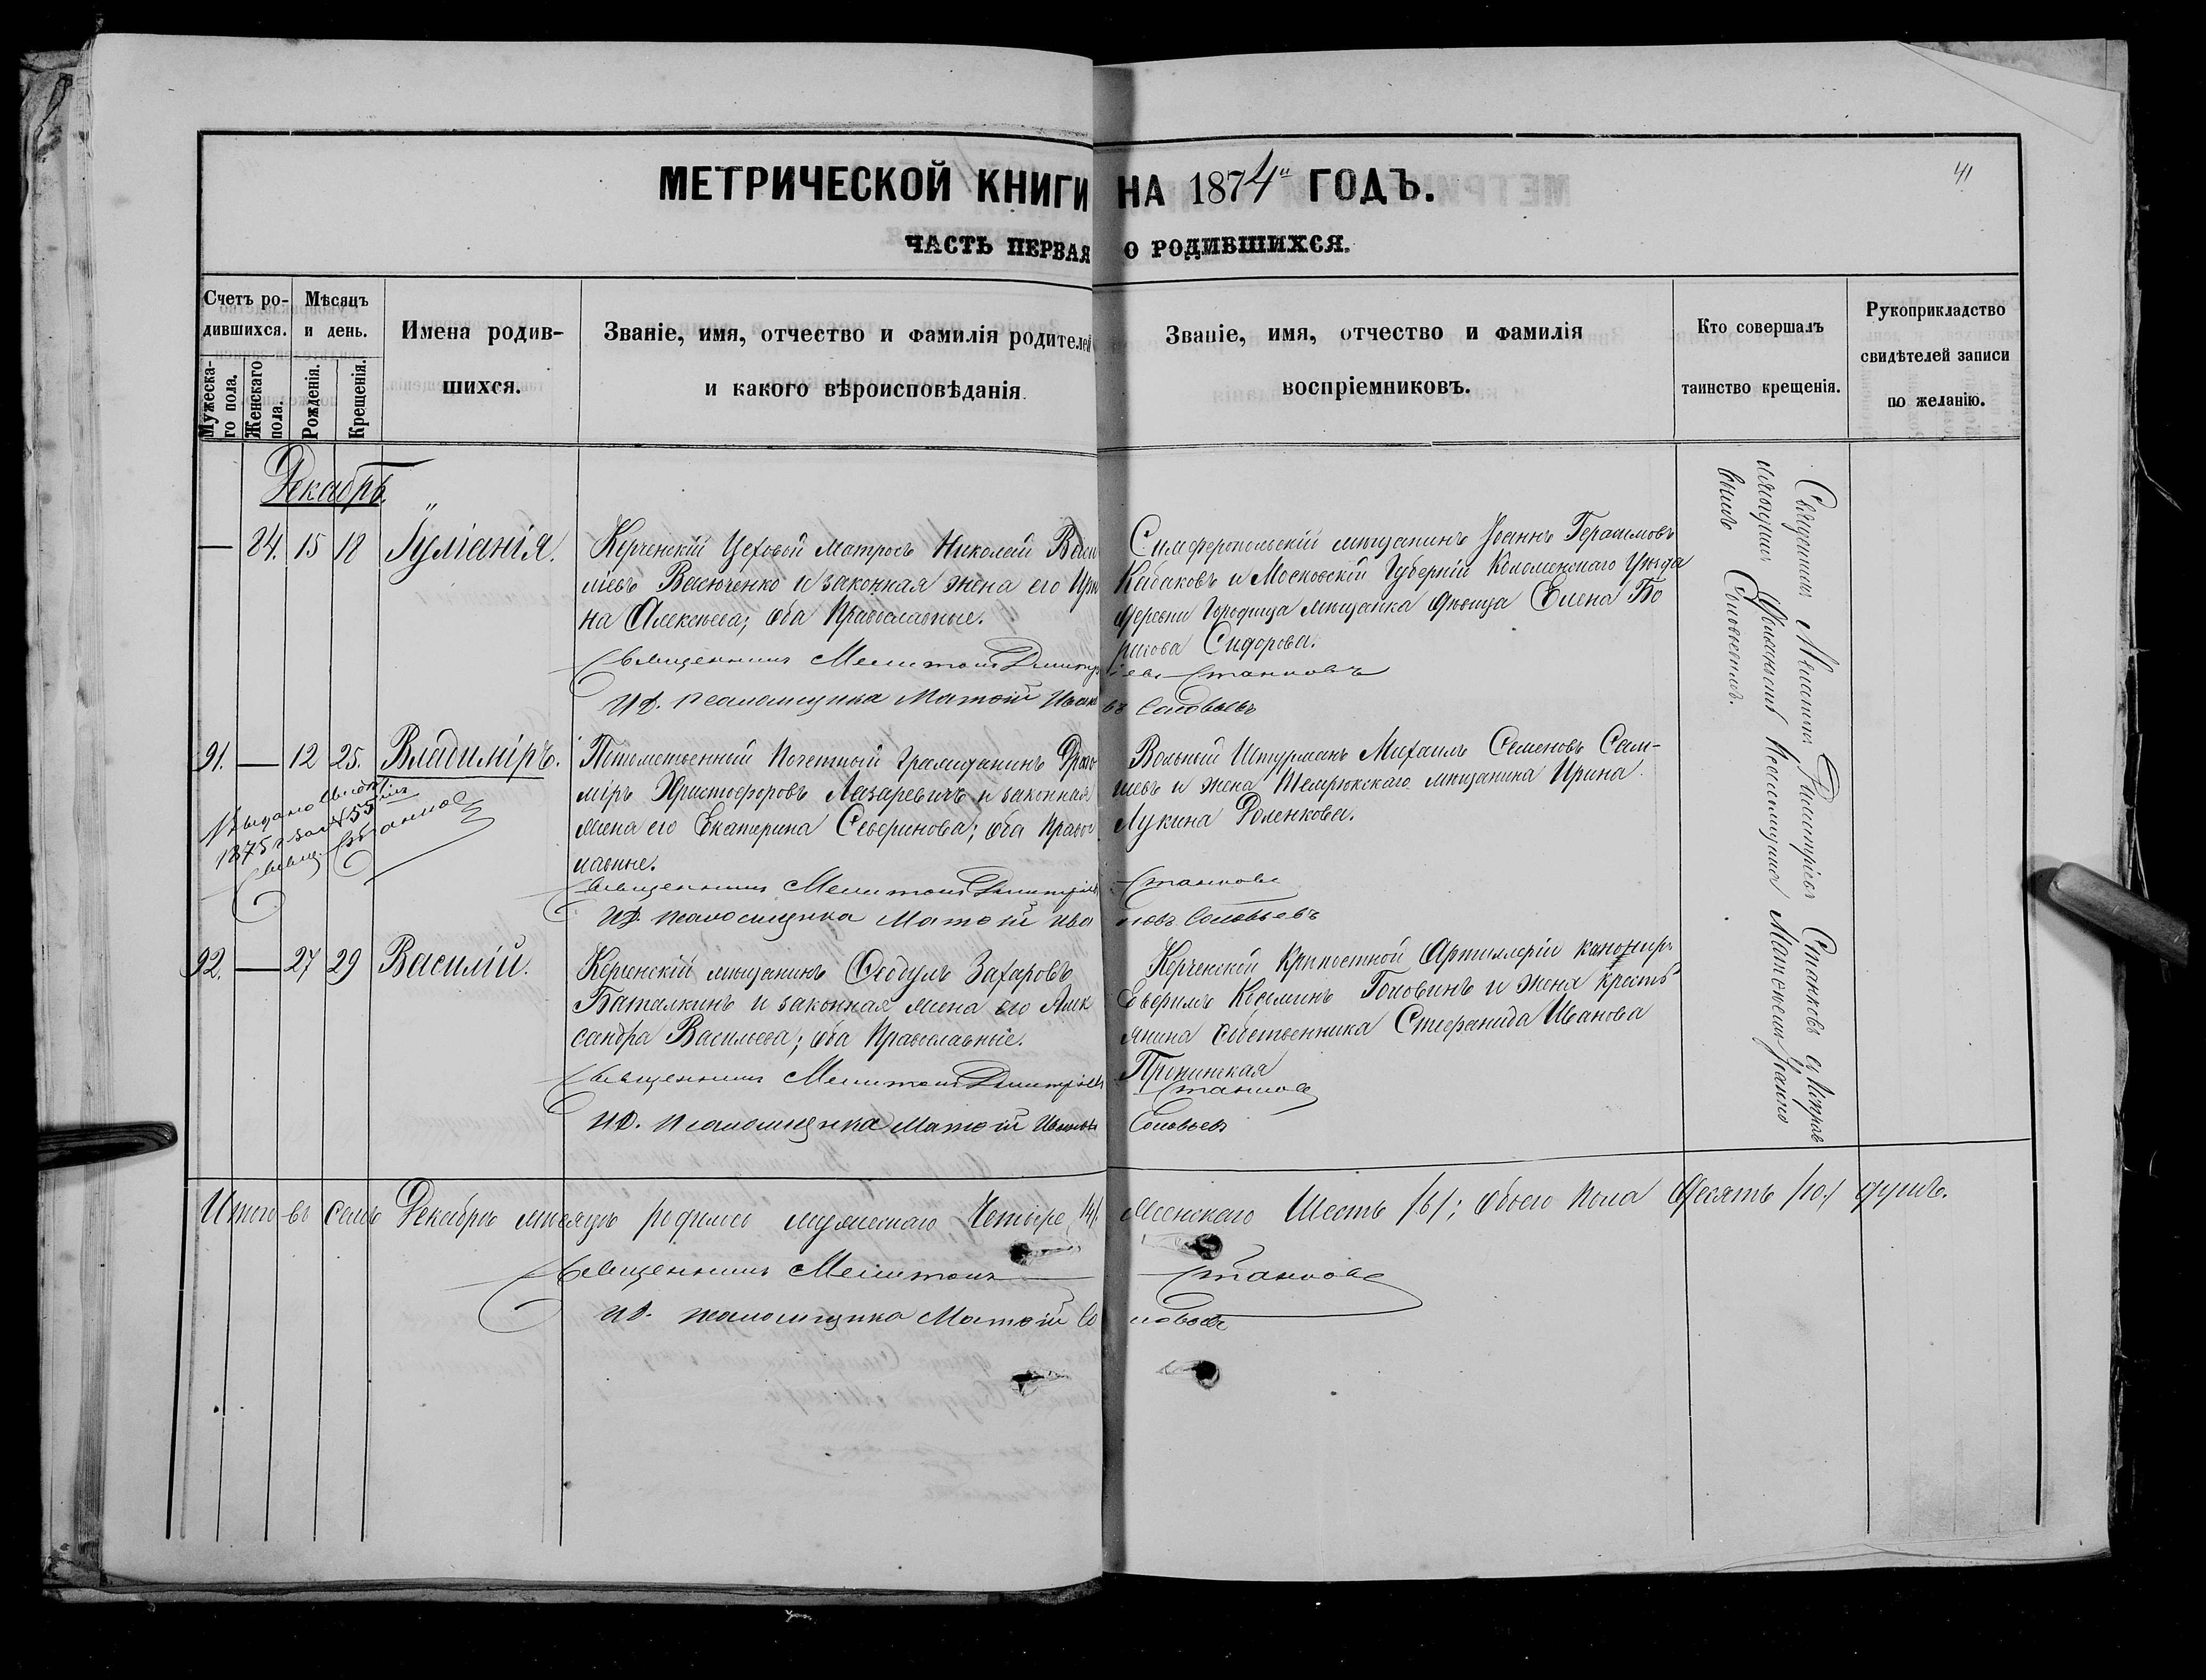 41
МЕТРИЧЕСКОЙ КНИГИ НА 1874й ГОДЪ.
ЧАСТЬ ПЕРВАЯ О РОДИВШИХСЯ.
Счетъ родившихся.
Мужескаго пола.
Женскаго пола.
Мѣсяцъ и день.
Рожденія.
Крещенія.
Имена родившихся.
Званіе, имя, отчество и фамилія родителей
и какого вѣроисповѣданія
Званіе, имя, отчество и фамилія
воспріемниковъ.
Кто совершалъ
таинство крещенія.
Рукоприкладство
свидѣтелей записи
по желанію.
Декабрь.
— 84. 15 18 Іуліанія.
Керченскій Цеховой Матросъ Николай Васи
ліевъ Васюченко и законная жена его Ири
на Алексѣева; оба Православные.
Священникъ Мелитонъ Димитріевъ Станковъ
И.Д. псаломщика Матѳій Ивановъ Соловьевъ
Симферопольскій мѣщанинъ Іоаннъ Герасимовъ
Кабаковъ и Московской Губерніи Коломенскаго Уѣзда
деревни Городища мѣщанка дѣвица Елена Бо
рисова Сидорова.
91. — 12 25. Владиміръ.
Потомственный Почетный Гражданинъ Драго
міръ Христофоровъ Лазаревичъ и законная
жена его Екатерина Северинова; оба Правос
лавные.
Священникъ Мелитонъ Димитріевъ Станковъ
И.Д. псаломщика Матѳій Ивановъ Соловьевъ
Вольный Штурманъ Михаилъ Семеновъ Сам-
шевъ и жена Темрюкскаго мѣщанина Ирина
Лукина Роленкова.
Выдано Свидѣт.
1875 г. за № 55
Свящ. Станковъ
92. — 27 29 Василій.
Керченскій мѣщанинъ Ѳеодулъ Захаровъ
Баталкинъ и законная жена его Алек
сандра Васильева; оба Православные.
Священникъ Мелитонъ Димитріевъ Станковъ
И.Д. псаломщика Матѳій Ивановъ Соловьевъ
Керченской Крѣпостной Артиллеріи канониръ
Евфимъ Косминъ Головинъ и жена кресть
янина собственника Стефанида Иванова
Пронинская
Священникъ Мелитонъ Димитріевъ Станковъ съ исправ
ляющимъ должность Псаломщика Матѳіемъ Іоанно
вымъ Соловьевымъ.
Итого въ семъ Декабрѣ мѣсяцѣ родилось мужескаго Четыре /4/. женскаго Шесть /6/; обоего пола десять /10./ душъ.
Священникъ Мелитонъ Станковъ
И.Д. псаломщика Матѳій Соловьевъ